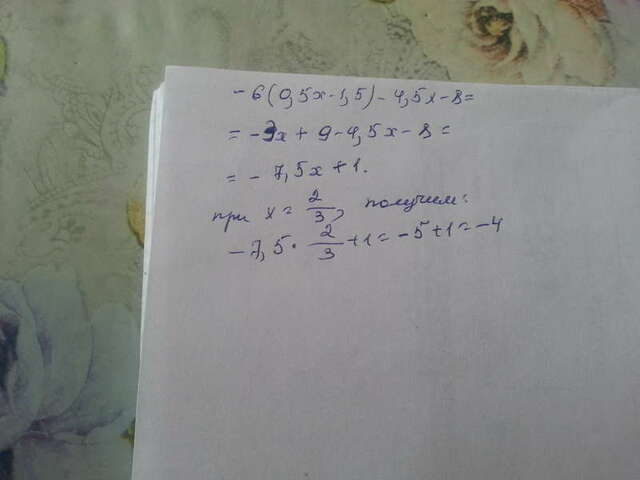 -6(0,5x-1,5)-4,5x-8=
=-3x+9-4,5x-8=
=-7,5x+1.
при x=2/3, получим:
-7,5·2/3+1=-5+1=-4